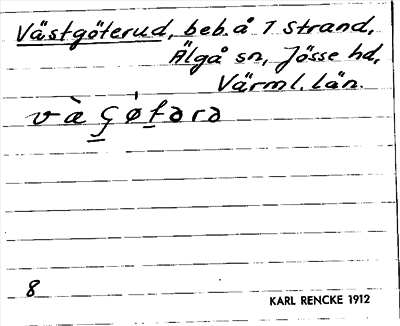 Västgöterud, beb. å 1 Strand,
Älgå sn, Jösse hd,
Värml. län.
8
KARL RENCKE 1912